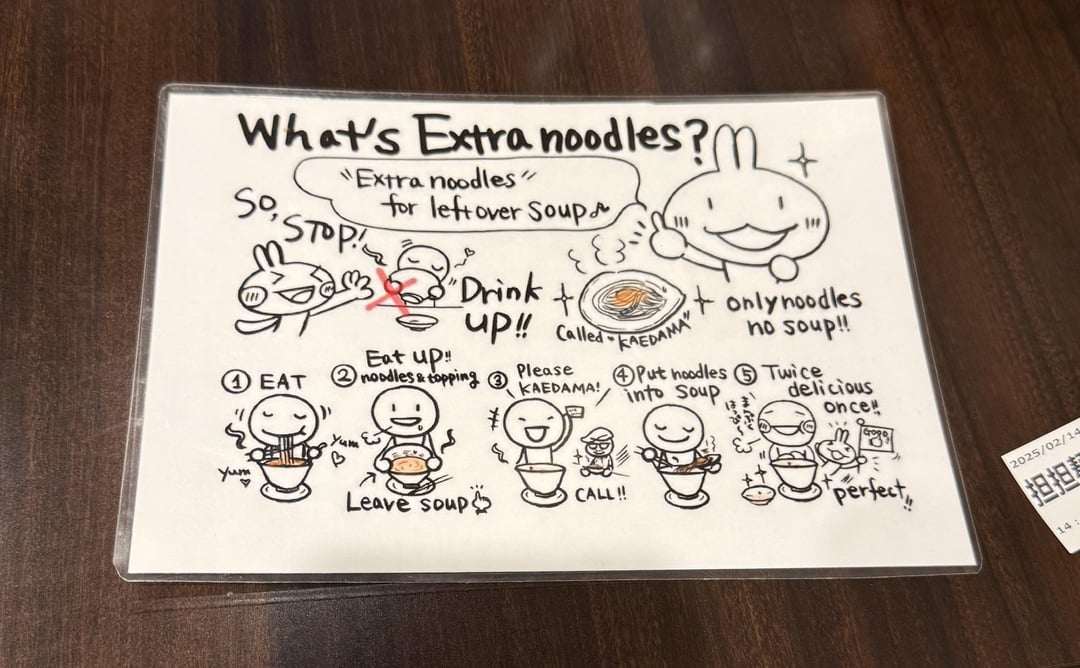 What's Extra noodles?
"Extra noodles"
for leftover soup♪
So,
STOP!
Drink
up!!
Called "KAEDAMA"
only noodles
no soup!!
① EAT
yum
yum
② Eat up!!
noodles & topping
Leave soup
③ Please
KAEDAMA!
CALL!!
④ Put noodles
into soup
⑤ Twice
delicious
once!!
perfect!!
2025/02/14
担担
14: